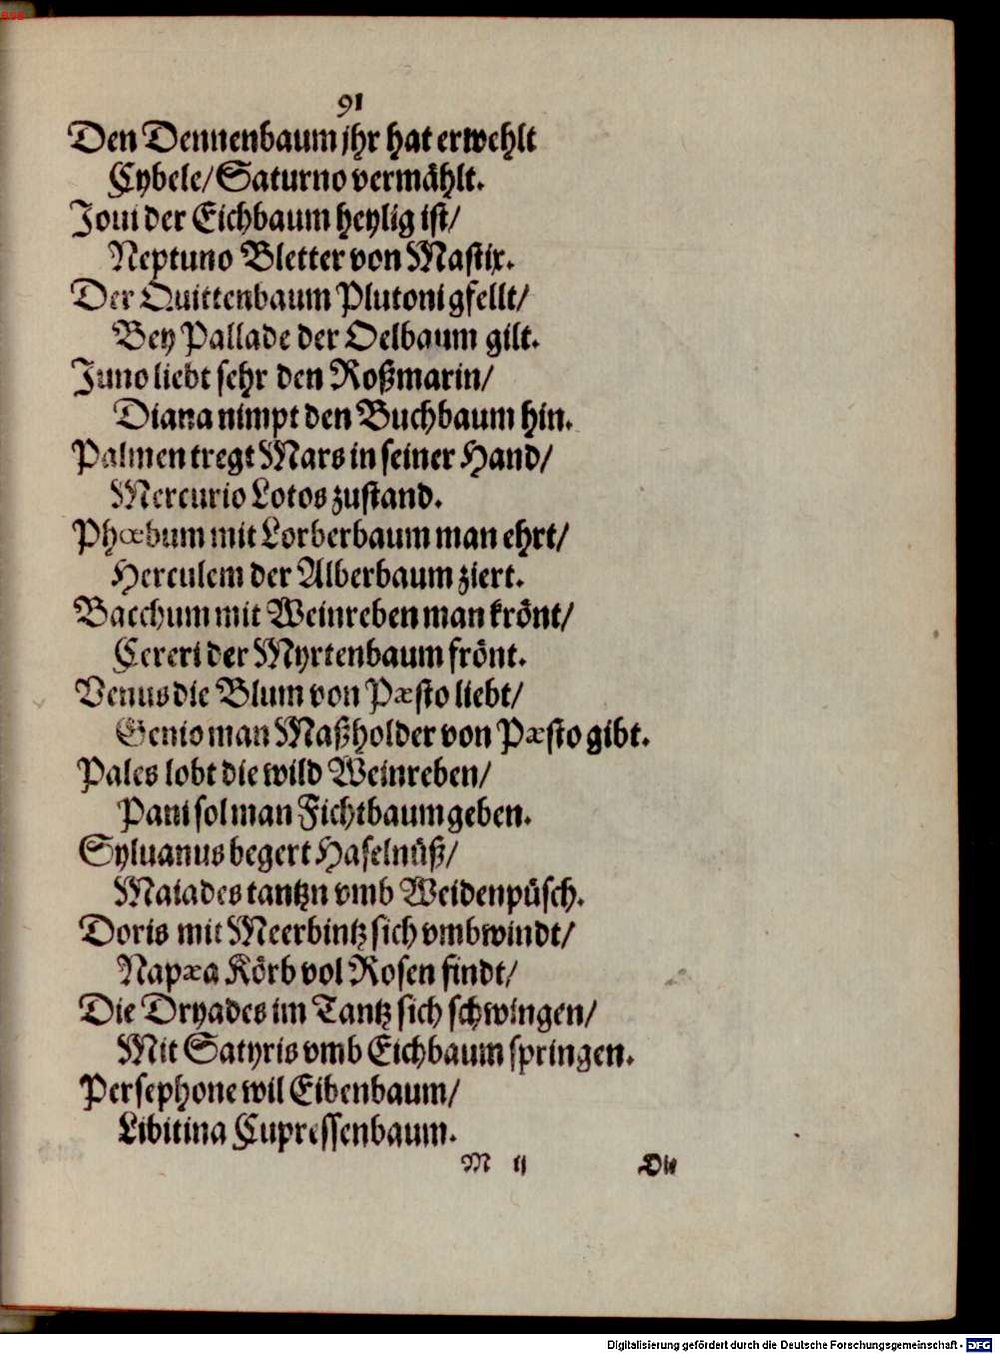 91
Den Dennenbaum jhr hat erwehlt
Cybele/ Saturno vermählt.
Joui der Eichbaum heylig ist/
Neptuno Bletter von Mastix.
Der Quittenbaum Plutoni gfellt/
Bey Pallade der Oelbaum gilt.
Juno liebt sehr den Roßmarin/
Diana nimpt den Buchbaum hin.
Palmen tregt Mars in seiner Hand/
Mercurio Lotos zustand.
Phœbum mit Lorberbaum man ehrt/
Herculem der Alberbaum ziert.
Bacchum mit Weinreben man krönt/
Cereri der Myrtenbaum frönt.
Venus die Blum von Pæsto liebt/
Genio man Maßholder von Pæsto gibt.
Pales lobt die wild Weinreben/
Pani sol man Fichtbaum geben.
Syluanus begert Haselnüß/
Maiades tantzn vmb Weidenpüsch.
Doris mit Meerbintz sich vmbwindt/
Napæa Körb vol Rosen findt/
Die Dryades im Tantz sich schwingen/
Mit Satyris vmb Eichbaum springen.
Persephone wil Eibenbaum/
Libitina Cupressenbaum.
M ij Die
Digitalisierung gefördert durch die Deutsche Forschungsgemeinschaft - DFG